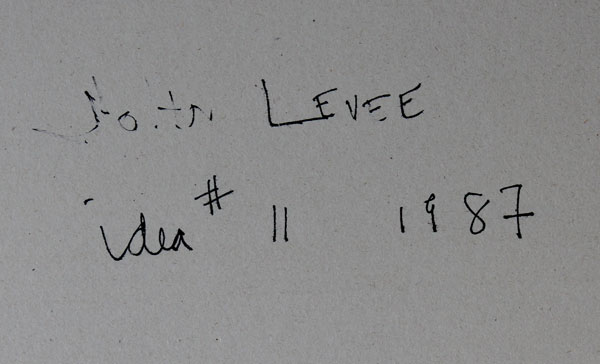 John LEVEE
idea # 11 1987